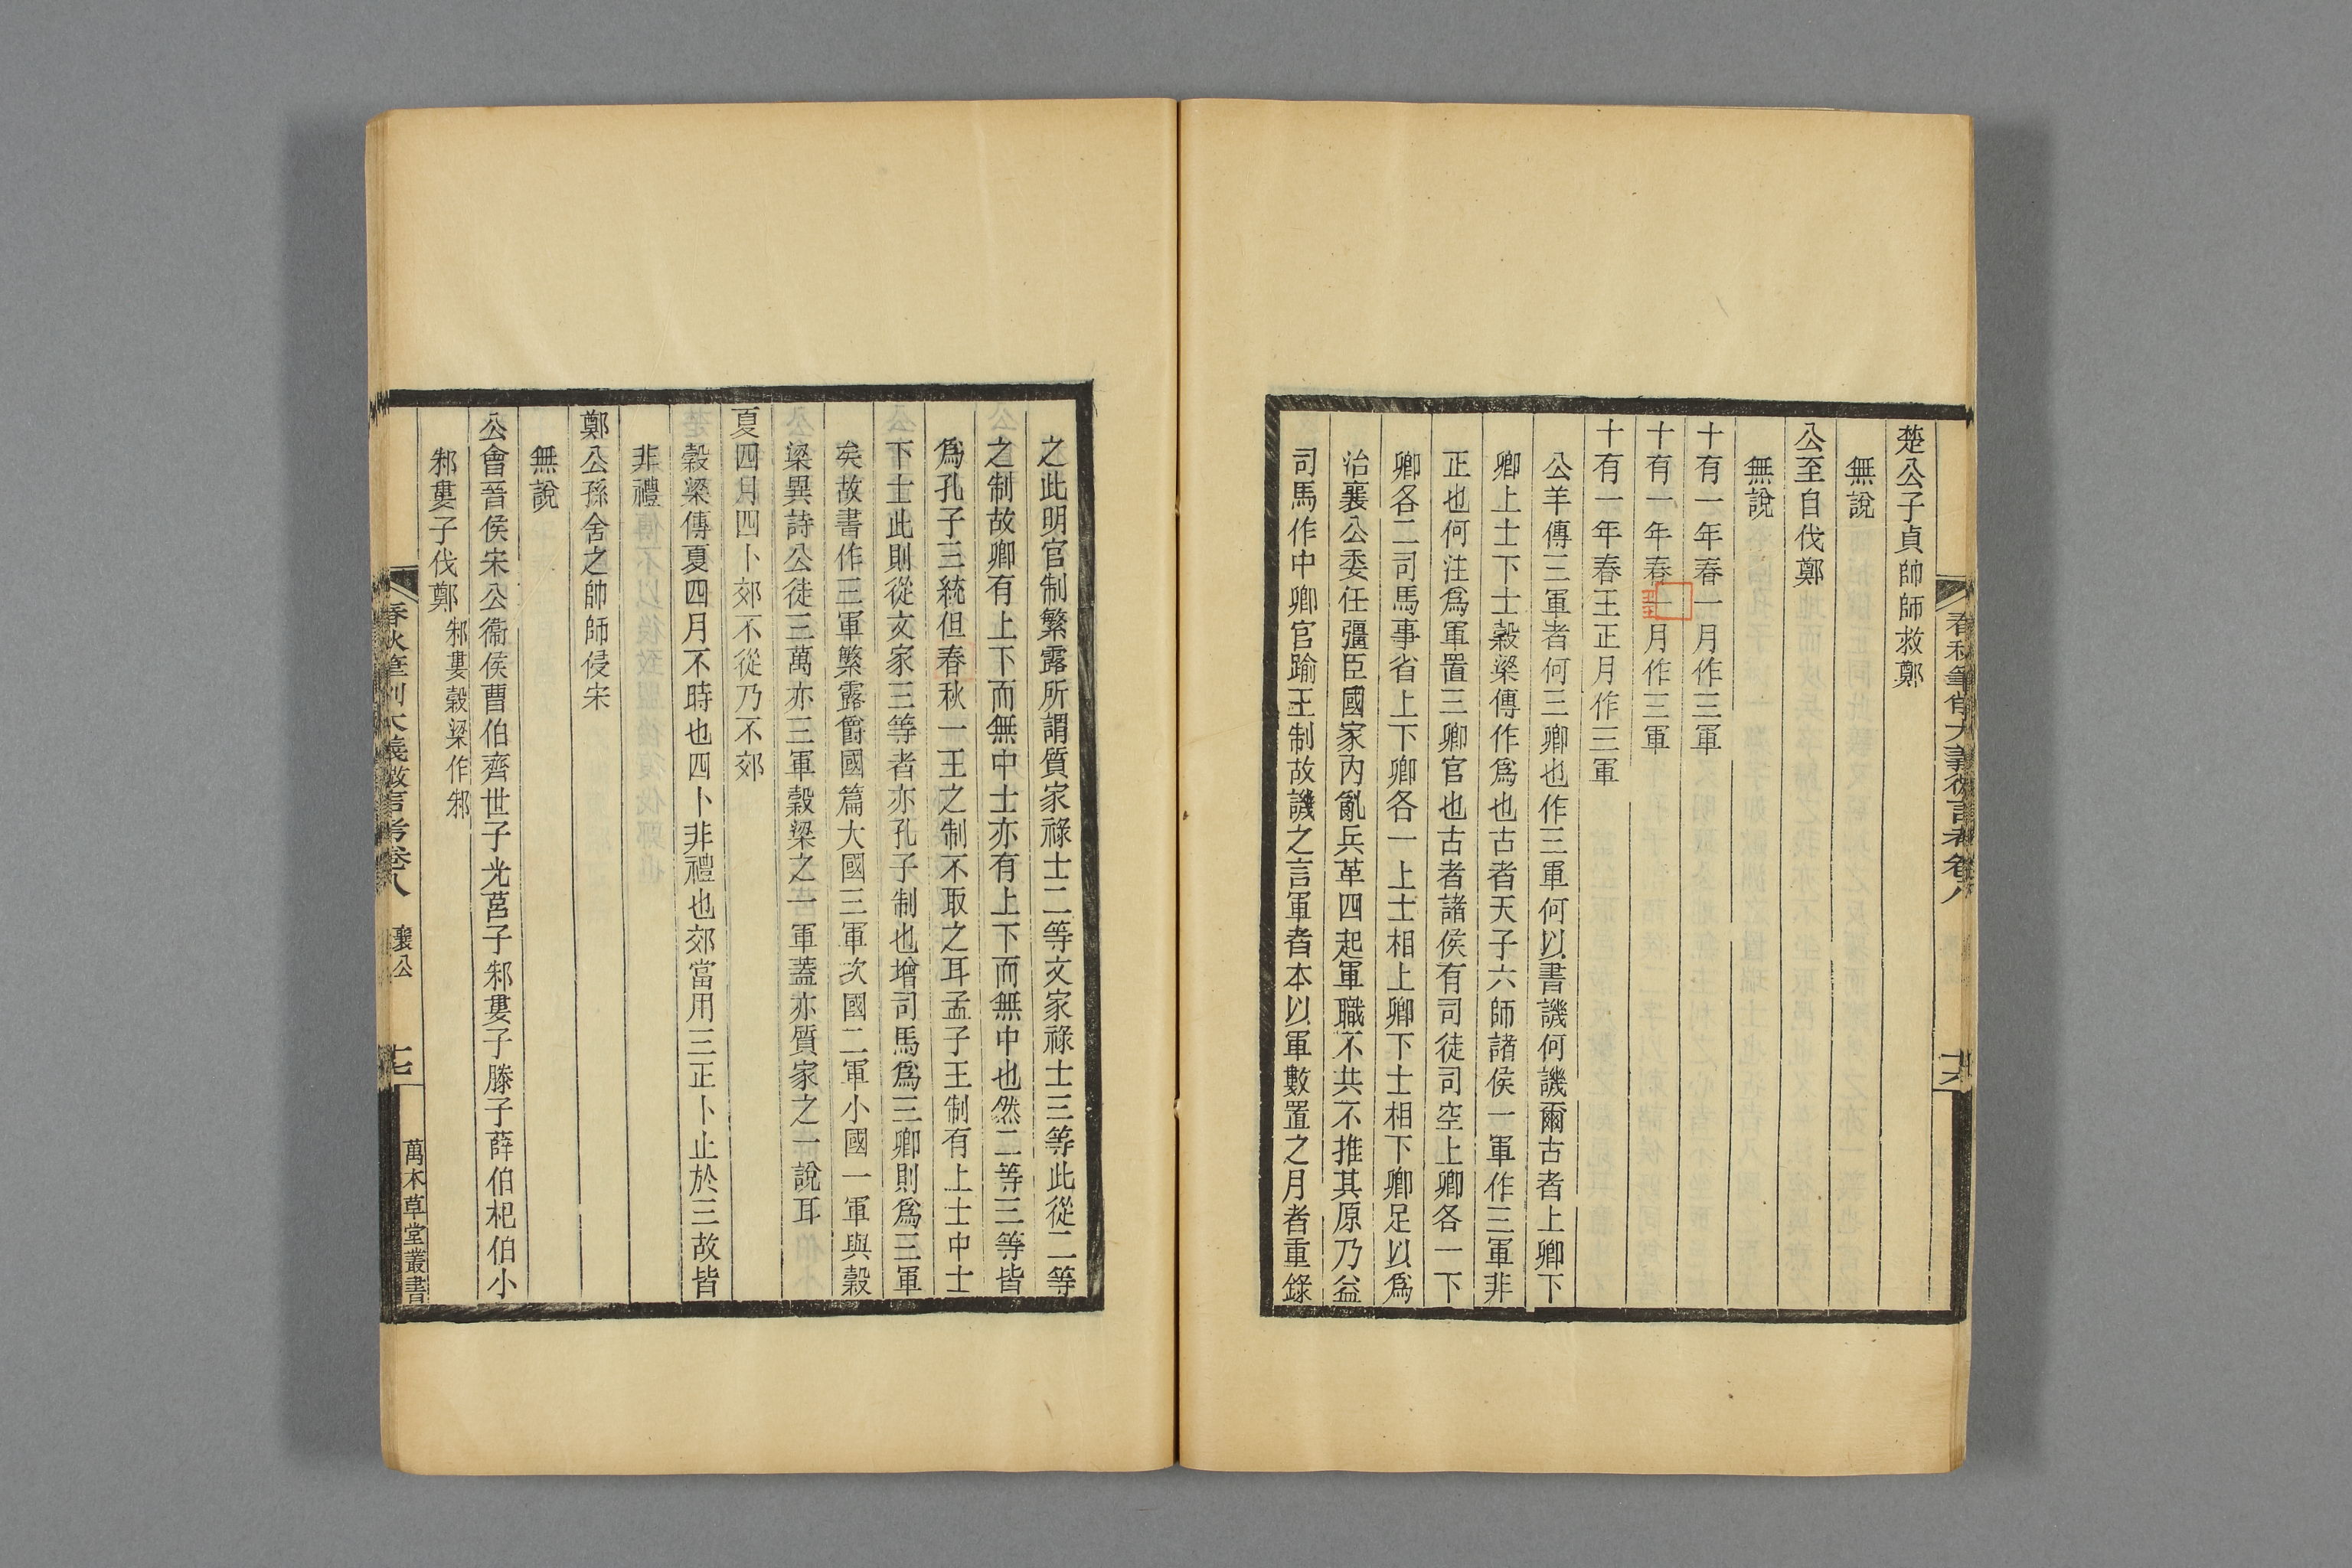 春秋筆削大義微言考卷八
十六
楚公子貞帥師救鄭
無說
公至自伐鄭
無說
十有一年春一月作三軍
十有一年春一月作三軍
十有一年春王正月作三軍
公羊傳三軍者何三卿也作三軍何以書譏何譏爾古者上卿下
卿上士下士穀梁傳作爲也古者天子六師諸侯一軍作三軍非
正也何注爲軍置三卿官也古者諸侯有司徒司空上卿各一下
卿各二司馬事省上下卿各一上士相上卿下士相下卿足以爲
治襄公委任彊臣國家內亂兵革四起軍職不共不推其原乃益
司馬作中卿官踰王制故譏之言軍者本以軍數置之月者重錄
之此明官制繁露所謂質家祿士二等文家祿士三等此從二等
之制故卿有上下而無中士亦有上下而無中也然二等三等皆
爲孔子三統但春秋一王之制不取之耳孟子王制有上士中士
下士此則從文家三等者亦孔子制也增司馬爲三卿則爲三軍
矣故書作三軍繁露爵國篇大國三軍次國二軍小國一軍與穀
梁異詩公徒三萬亦三軍穀梁之一軍蓋亦質家之一說耳
夏四月四卜郊不從乃不郊
穀梁傳夏四月不時也四卜非禮也郊當用三正卜止於三故皆
非禮
鄭公孫舍之帥師侵宋
無說
公會晉侯宋公衞侯曹伯齊世子光莒子邾婁子滕子薛伯杞伯小
邾婁子伐鄭 邾婁穀梁作邾
春秋筆削大義微言考卷八 襄公
十七
萬木草堂叢書